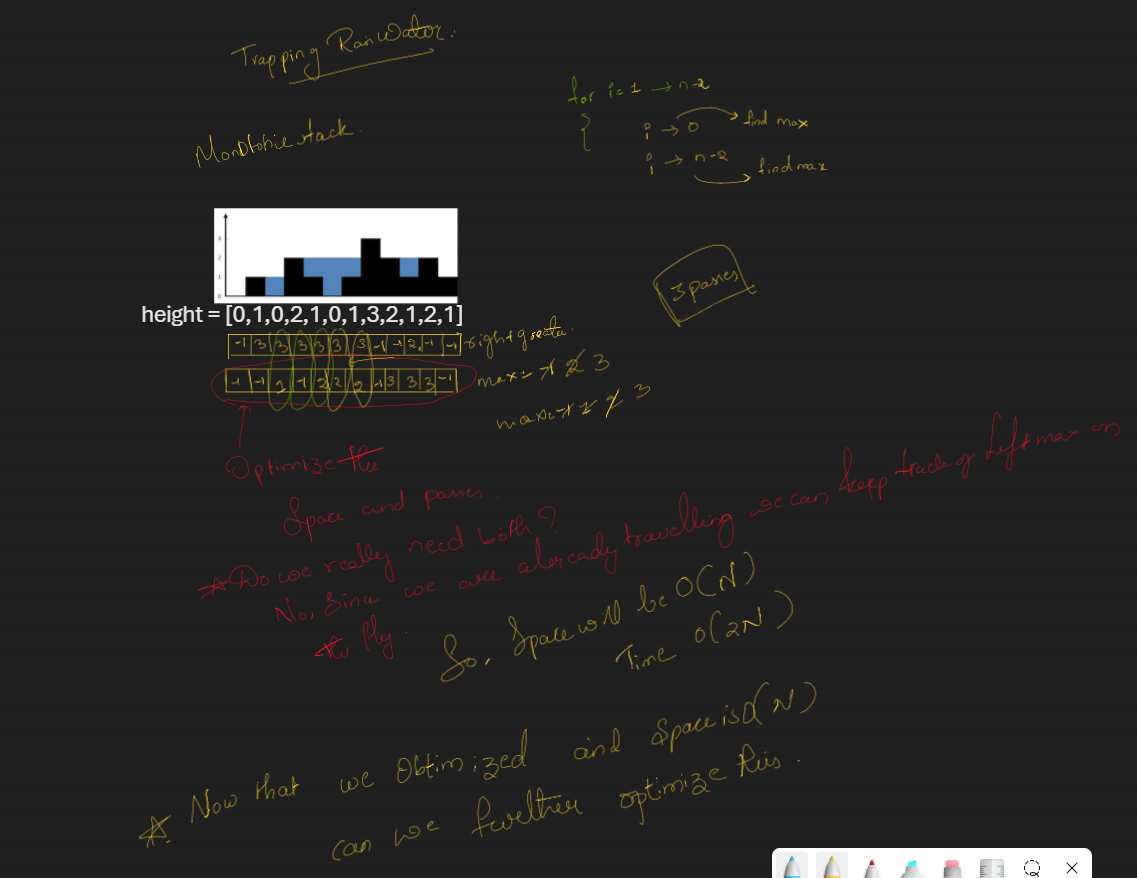 Trapping Rain Water.
for i = 1 → n-2
{
i → 0 find max
i → n-2 find max
Monotonic stack.
3 passes
3
2
1
0
height = [0,1,0,2,1,0,1,3,2,1,2,1]
-1 3 3 3 3 3 3 -1 -1 2 -1 -1 right greater.
-1 -1 1 -1 2 2 2 -1 3 3 3 -1 max = -1 2 3
max = -1 1 2 3
Optimize the
Space and passes.
* Do we really need both?
No, Since we are already travelling we can keep track of left max on
the fly.
So, Space will be O(N)
Time O(2N)
* Now that we Obtimized and Space is O(N)
can we further optimize this.